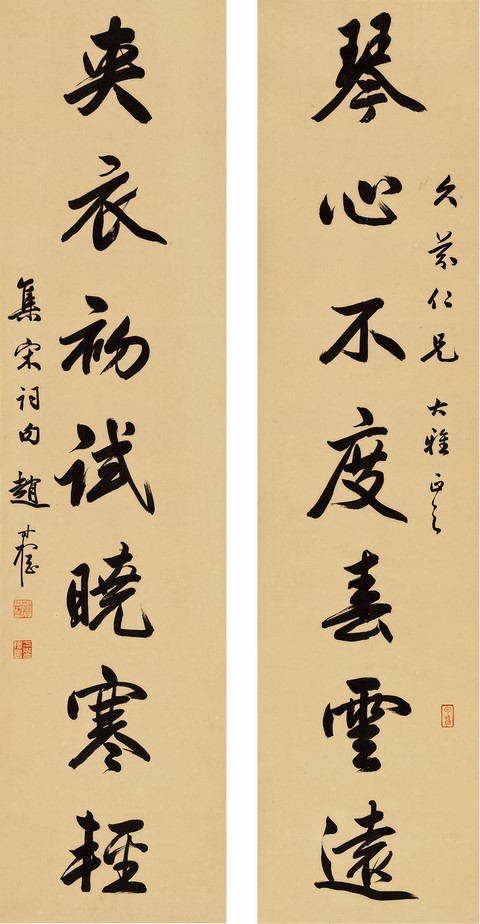 久芬仁兄大雅正之
琴心不度春雲遠
夾衣初試曉寒輕
集宋詞句 趙叔孺